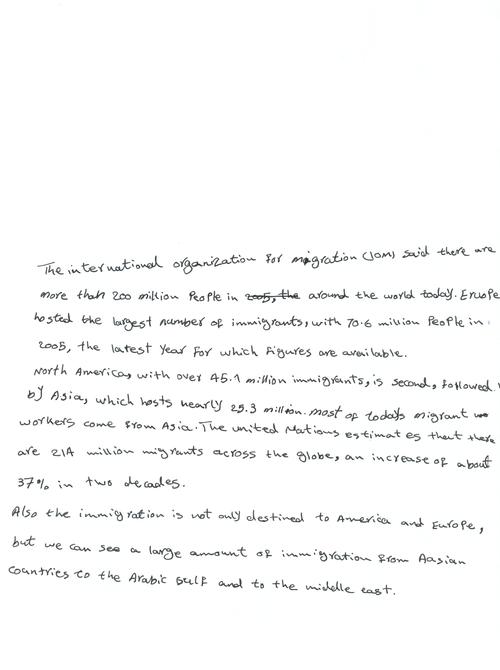 The international organization for migration (IOM) said there are
more than 200 million people in 2005, the around the world today. Eruope
hosted the largest number of immigrants, with 70.6 million people in
2005, the latest year for which figures are available.
North America, with over 45.1 million immigrants, is second, followed
by Asia, which hosts nearly 25.3 million. most of today's migrant
workers come from Asia. The united Nations estimates that there
are 214 million migrants across the globe, an increase of about
37% in two decades.
Also the immigration is not only destined to America and Europe,
but we can see a large amount of immigration from Aasian
countries to the Arabic Gulf and to the middle east.